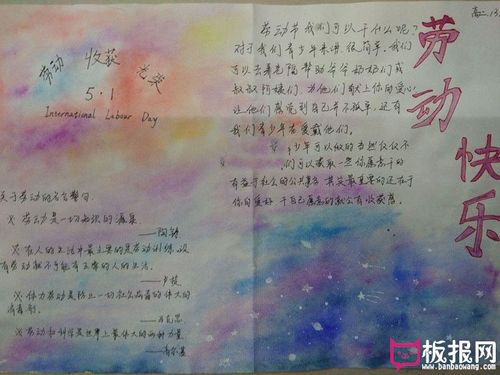 高二.13.
劳动快乐
劳动 收获 光荣
5·1
International Labour Day
劳动节我们可以干什么呢?
对于我们青少年来讲,很简单.我们
可以去养老院帮助爷爷奶奶们或
叔叔阿姨们.为他们献上你的爱心
让他们感觉到自己并不孤单,还有
我们青少年在爱戴他们.
青少年可以做的当然仅仅不
们可以获取一些你愿意干的
有益于社会的公共事务 其实最重要的还在于
你的爱好 干自己愿意的就会有收获感
关于劳动的名言警句.
※ 劳动是一切知识的源泉
——陶铸
※ 在人的生活中最主要的是劳动训练,没
有劳动就不可能有正常的人的生活.
——卢梭
※ 体力劳动是防止一切社会病毒的伟大的
消毒剂.
——马克思
※ 劳动和科学是世界上最伟大的两种力量
——高尔基
板报网
www.banbaowang.com